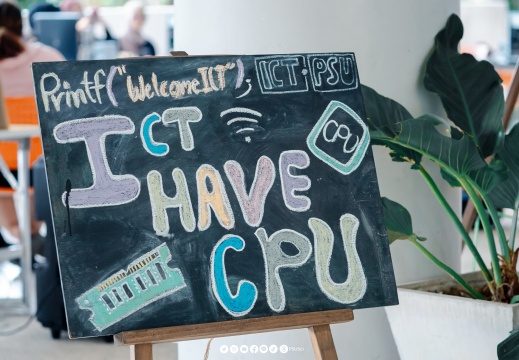 Printf("WelcomeICT"); ICT·PSU
ICT
CPU
HAVE
CPU